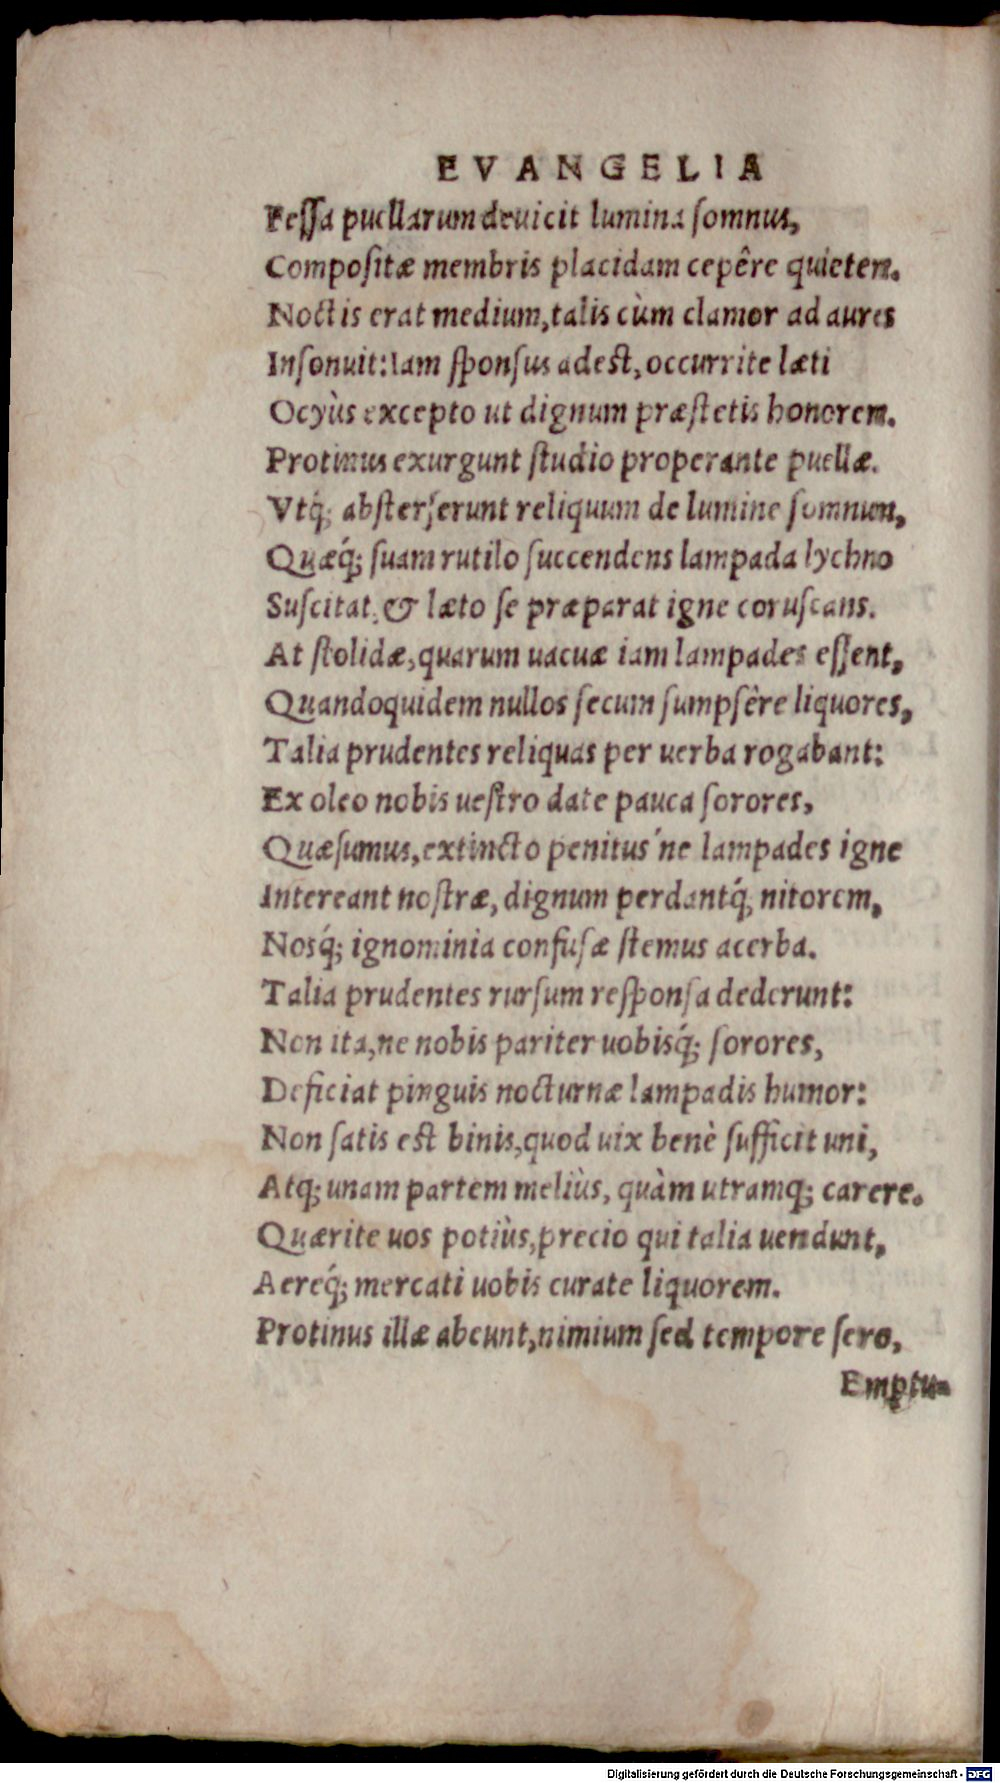 EVANGELIA
Feſſa puellarum deuicit lumina ſomnus,
Compoſitæ membris placidam cepêre quietem.
Noctis erat medium, talis cùm clamor ad aures
Inſonuit: Iam ſponſus adeſt, occurrite læti
Ocyùs excepto ut dignum præſtetis honorem.
Protinus exurgunt ſtudio properante puellæ.
Vtq́; abſterſerunt reliquum de lumine ſomnum,
Quæq́; ſuam rutilo ſuccendens lampada lychno
Suſcitat, & læto ſe præparat igne coruſcans.
At ſtolidæ, quarum uacuæ iam lampades eſſent,
Quandoquidem nullos ſecum ſumpſêre liquores,
Talia prudentes reliquas per uerba rogabant:
Ex oleo nobis ueſtro date pauca ſorores,
Quæſumus, extincto penitus ́ne lampades igne
Intereant noſtræ, dignum perdantq́; nitorem,
Nosq́; ignominia confuſæ ſtemus acerba.
Talia prudentes rurſum reſponſa dederunt:
Non ita, ne nobis pariter uobisq́; ſorores,
Deficiat pinguis nocturnæ lampadis humor:
Non ſatis eſt binis, quod uix benè ſufficit uni,
Atq; unam partem meliùs, quàm utramq; carere.
Quærite uos potiùs, precio qui talia uendunt,
Aereq́; mercati uobis curate liquorem.
Protinus illæ abeunt, nimium ſed tempore ſero,
Emptu-
Digitalisierung gefördert durch die Deutsche Forschungsgemeinschaft - DFG